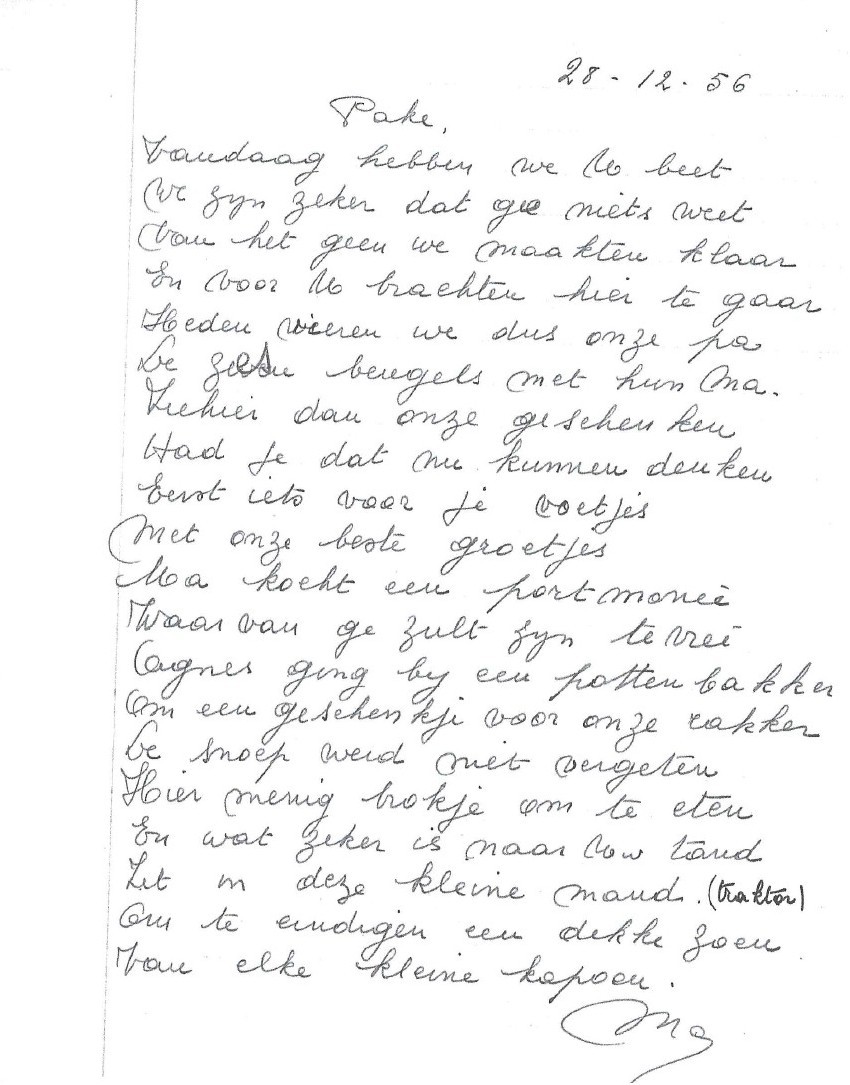 28 - 12 - 56
Pake,
Vandaag hebben we U beet
We zyn zeker dat ge niets weet
Van het geen we maakten klaar
En voor U brachten hier te gaar
Heden vieren we dus onze pa
De bengels met hun Ma.
Ziehier dan onze geschenken
Had je dat nu kunnen denken
Eerst iets voor je voetjes
Met onze beste groetjes
Ma kocht een portmoneé
Waarvan ge zult zyn te vreé
Agnes ging by een pottenbakker
Om een geschenkje voor onze rakker
De snoep werd niet vergeten
Hier menig brokje om te eten
En wat zeker is naar Uw tand
Zit in deze kleine mand. (traktor)
Om te eindigen een dikke zoen
Van elke kleine kapoen.
Ma